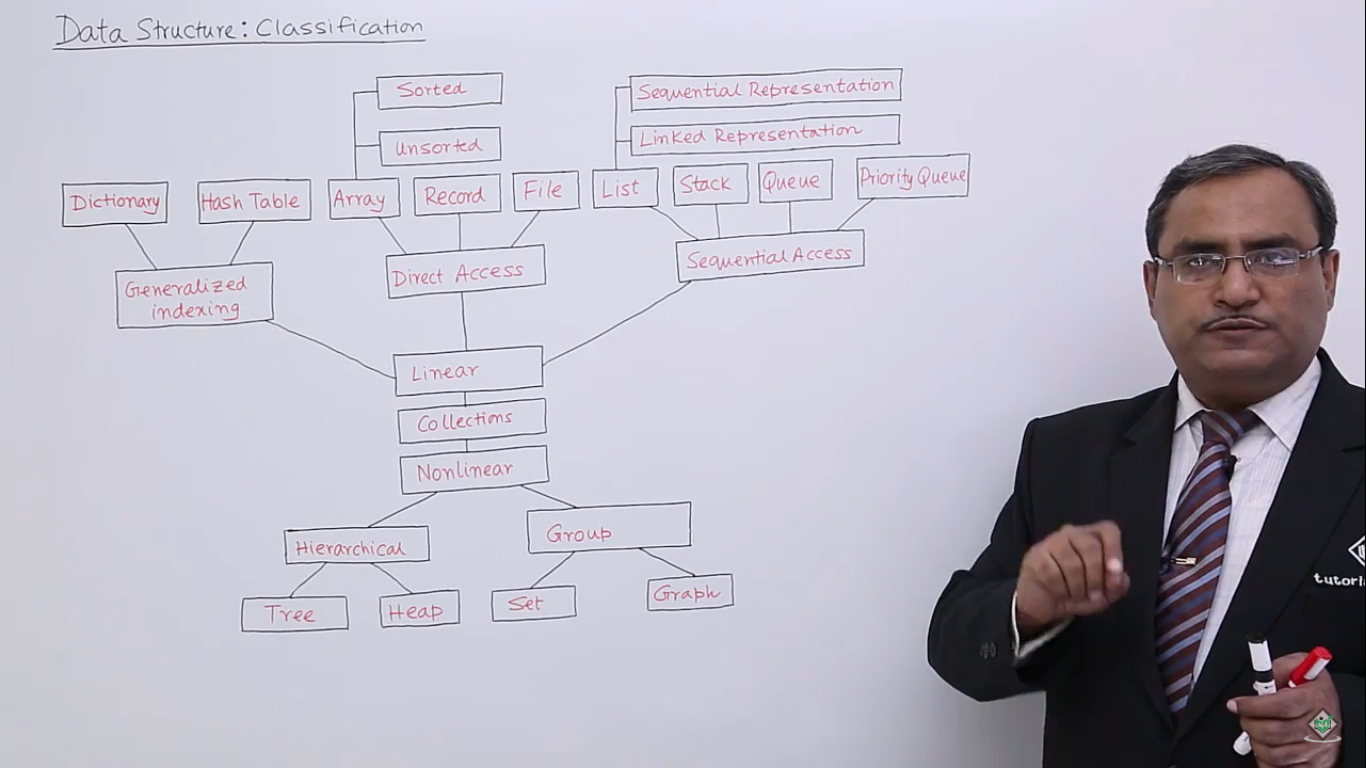 Data Structure: Classification
Sorted
Sequential Representation
Unsorted
Linked Representation
Dictionary
Hash Table
Array
Record
File
List
Stack
Queue
Priority Queue
Generalized
indexing
Direct Access
Sequential Access
Linear
Collections
Nonlinear
Hierarchical
Group
Tree
Heap
Set
Graph